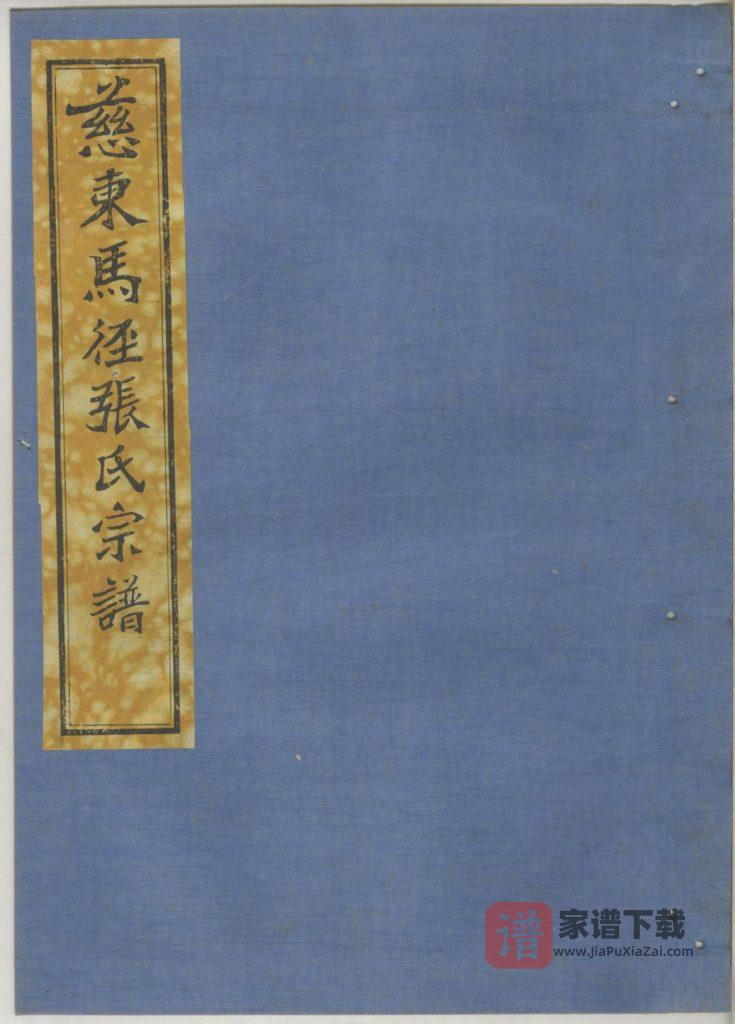 慈東馬徑張氏宗譜
谱
家谱下载
www.JiaPuXiaZai.com